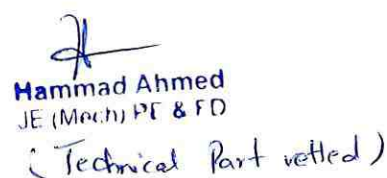 Hammad Ahmed
JE (Mech) PT & FD
(Technical Part vetted)